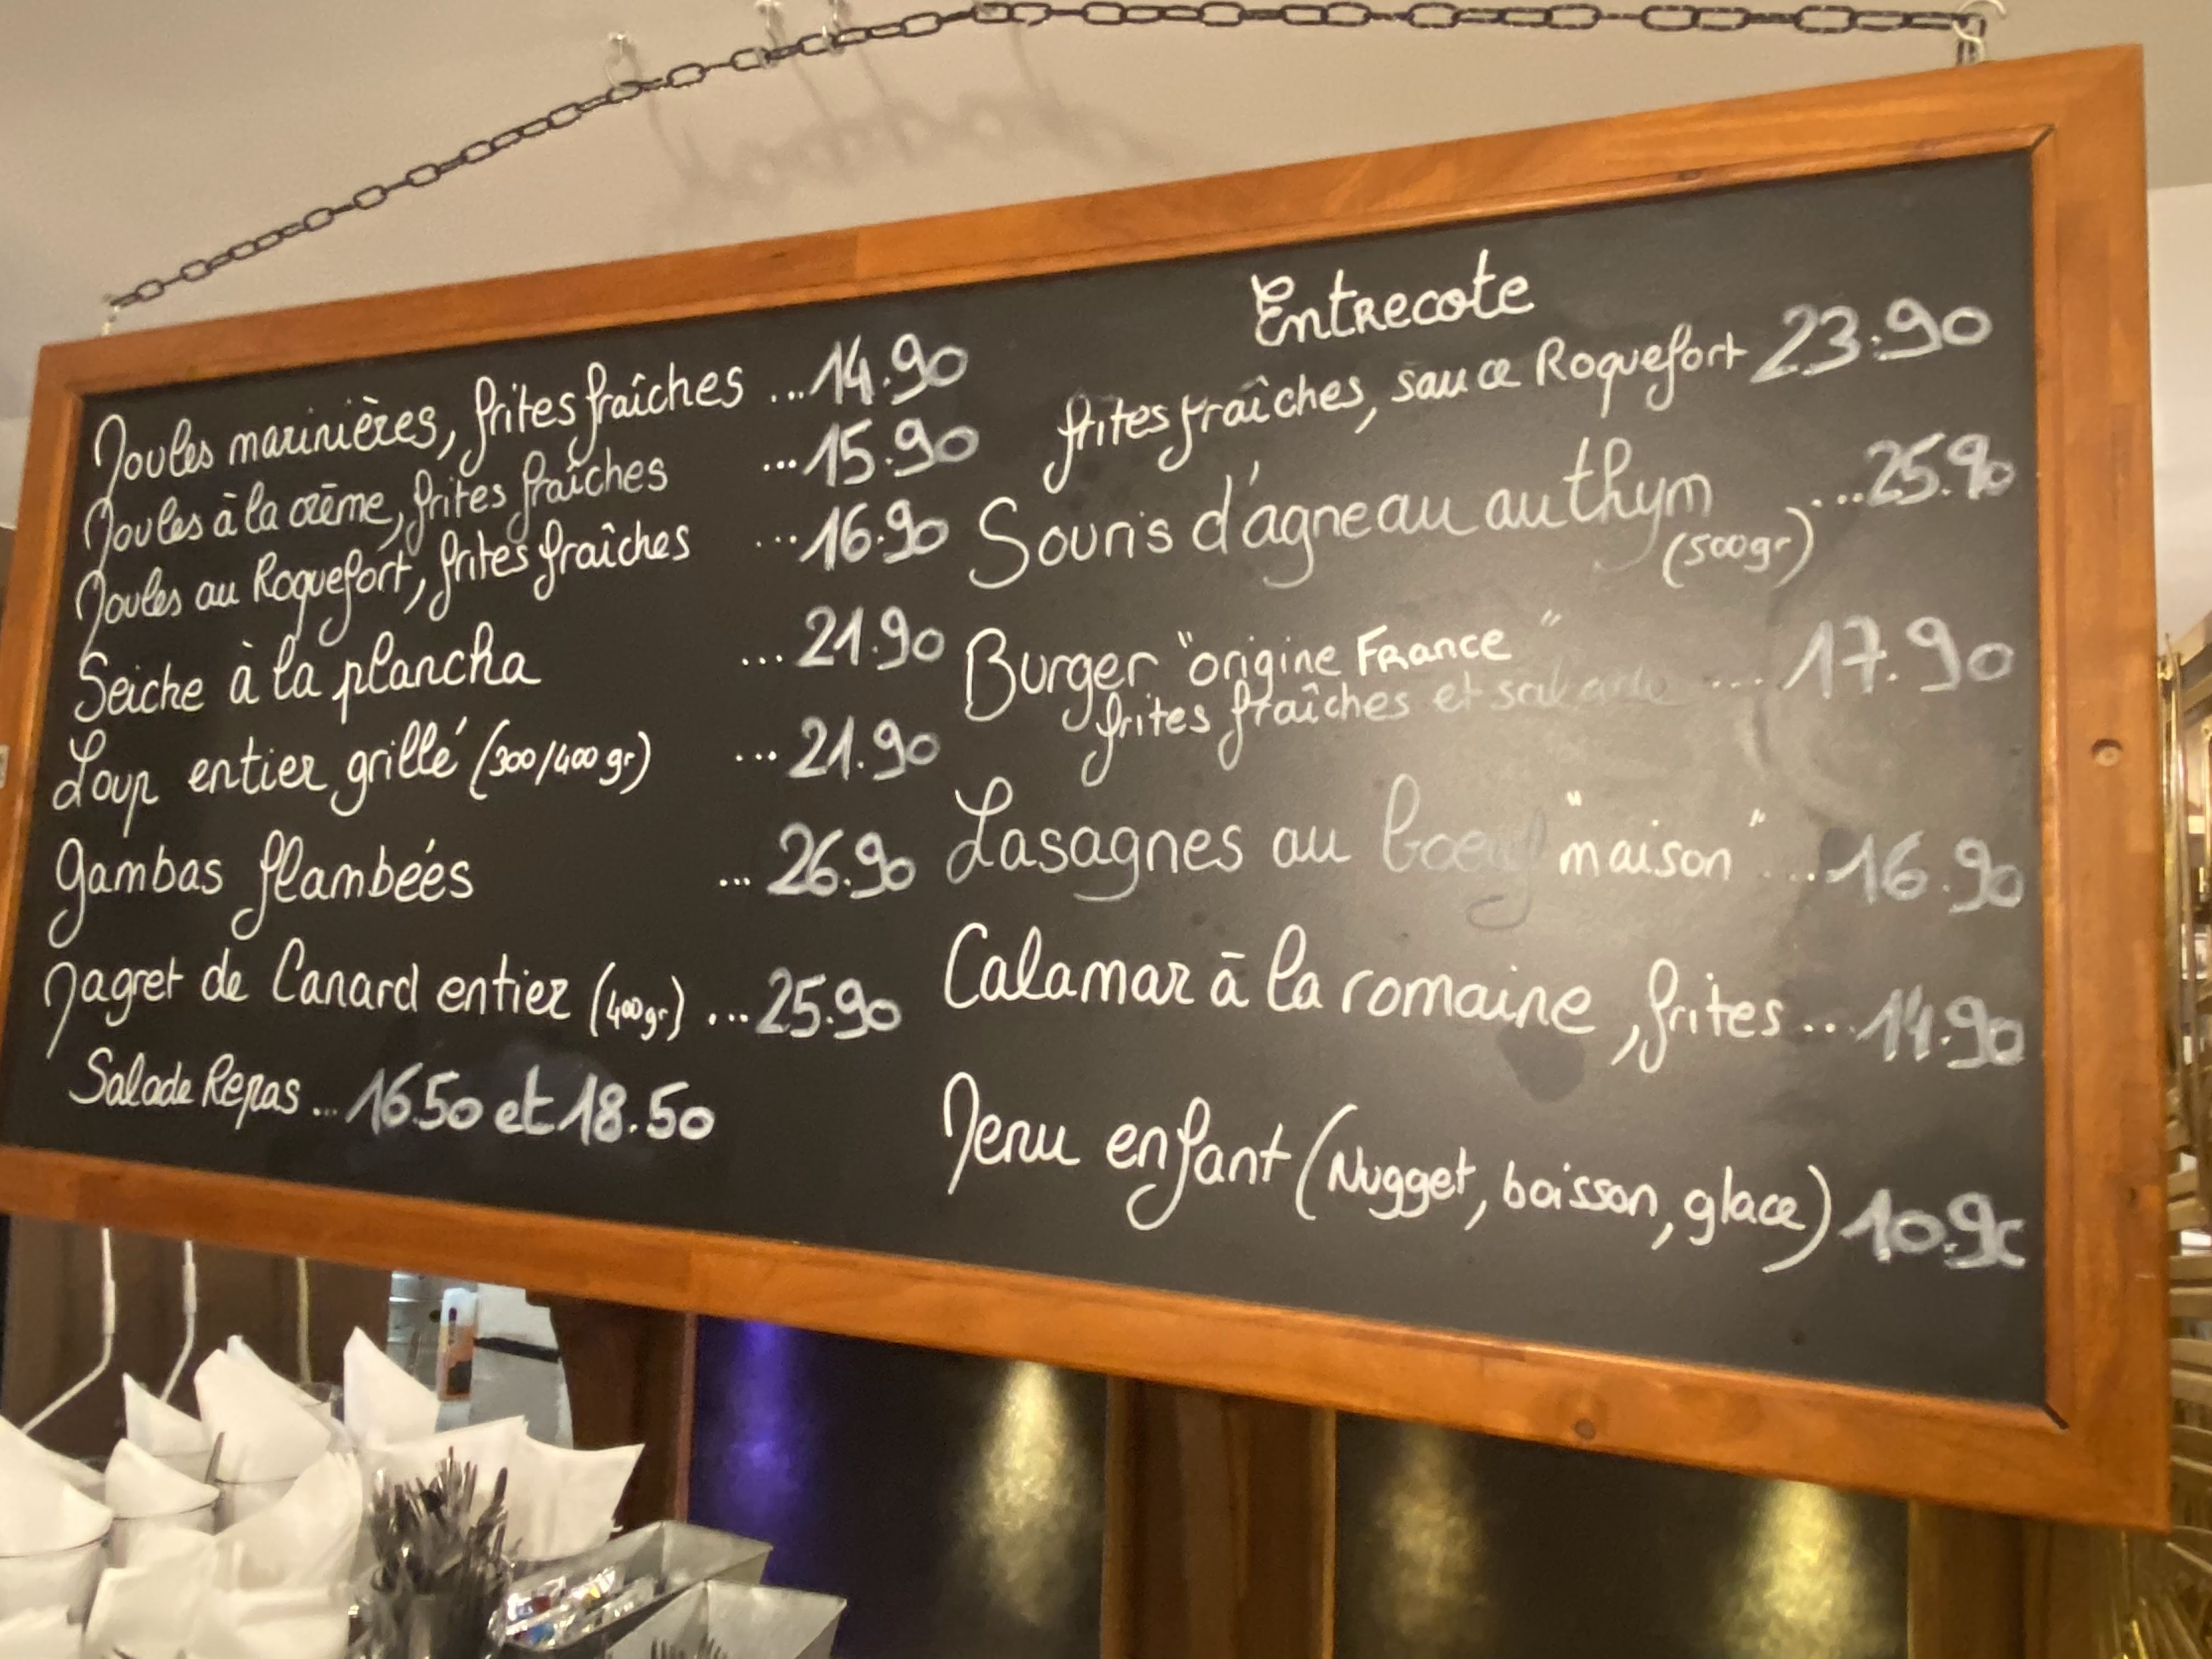 Moules marinières, frites fraîches ...14.90
Moules à la crème, frites fraîches ...15.90
Moules au Roquefort, frites fraîches ...16.90
Seiche à la plancha ...21.90
Loup entier grillé (300/400 gr) ...21.90
Gambas flambées ...26.90
Magret de Canard entier (400gr) ...25.90
Salade Repas ...16.50 et 18.50
Entrecote
frites fraîches, sauce Roquefort 23.90
Souris d'agneau au thym ...25.90
(500gr)
Burger "origine France"
frites fraîches et salade ....17.90
Lasagnes au boeuf "maison" ...16.90
Calamar à la romaine, frites ...14.90
Menu enfant (Nugget, boisson, glace) 10.90